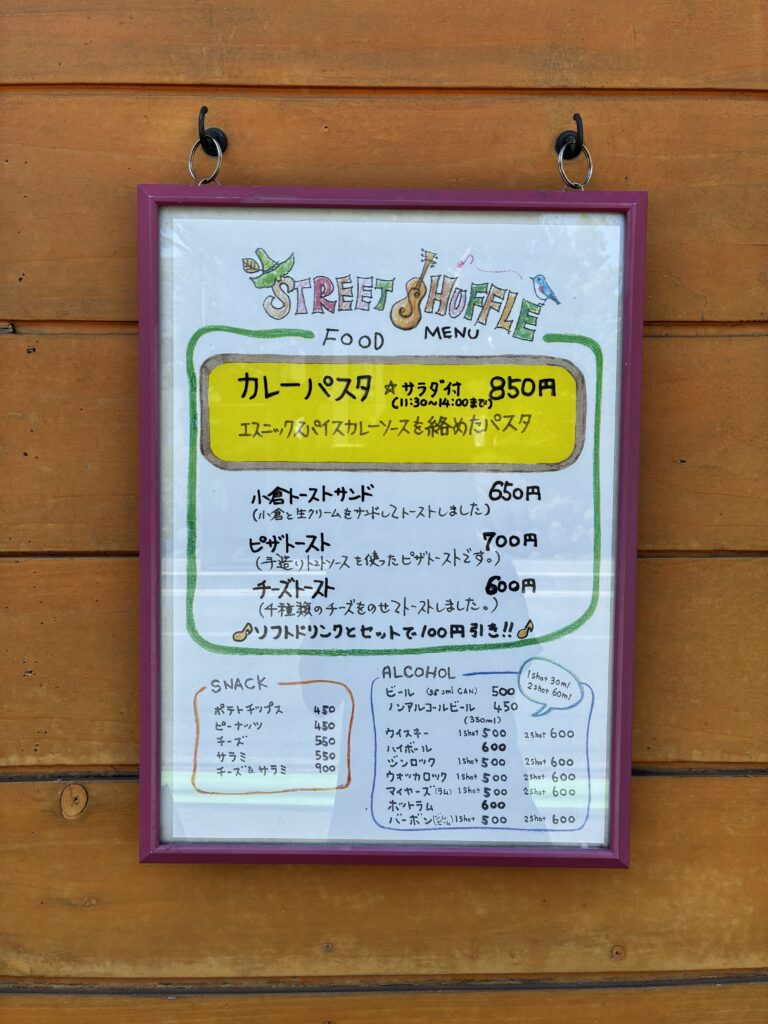 STREET SHUFFLE
FOOD MENU
カレーパスタ ☆サラダ付 850円
(11:30〜14:00まで)
エスニックスパイスカレーソースを絡めたパスタ
小倉トーストサンド 650円
(小倉と生クリームをサンドしてトーストしました)
ピザトースト 700円
(手造りトマトソースを使ったピザトーストです。)
チーズトースト 600円
(4種類のチーズをのせてトーストしました。)
ソフトドリンクとセットで100円引き!!
SNACK
ポテトチップス 450
ピーナッツ 450
チーズ 550
サラミ 550
チーズ&サラミ 900
ALCOHOL
1shot 30ml
2shot 60ml
ビール (350ml CAN) 500
ノンアルコールビール 450
(350ml)
ウイスキー 1shot 500 2shot 600
ハイボール 600
ジンロック 1shot 500 2shot 600
ウォッカロック 1shot 500 2shot 600
マイヤーズ(ラム) 1shot 500 2shot 600
ホットラム 600
バーボン 1shot 500 2shot 600